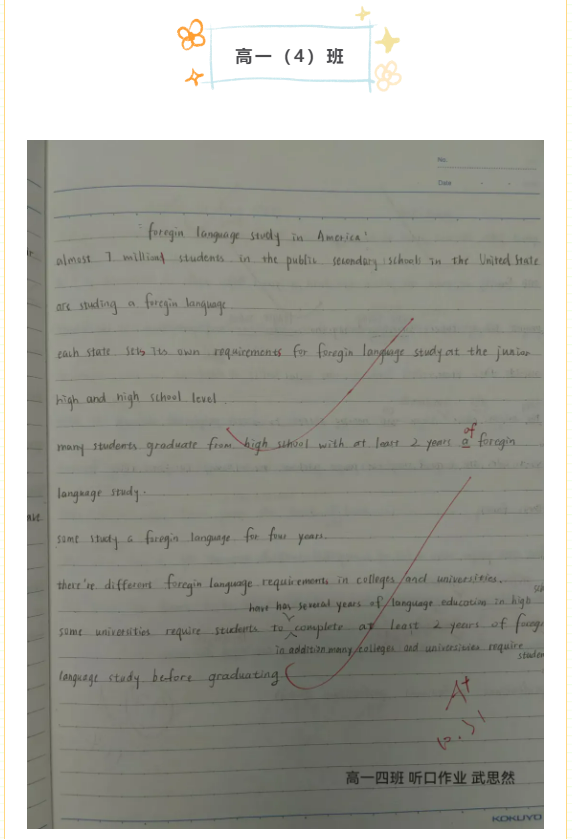 高一（4）班
No.
Date
"foregin language study in America"
almost 7 milliond students in the public secondary schools in the United State
are studing a foregin language
each state sets its own requirements for foregin language study at the junior
high and high school level.
of
many students graduate from high school with at least 2 years a foregin
language study.
some study a foregin language for four years.
there're different foregin language requirements in colleges and universities.
have has several years of language education in high
some universities require students to complete at least 2 years of
in addition many colleges and universities require
language study before graduating.
A+
高一四班 听口作业 武思然
KOKUYO